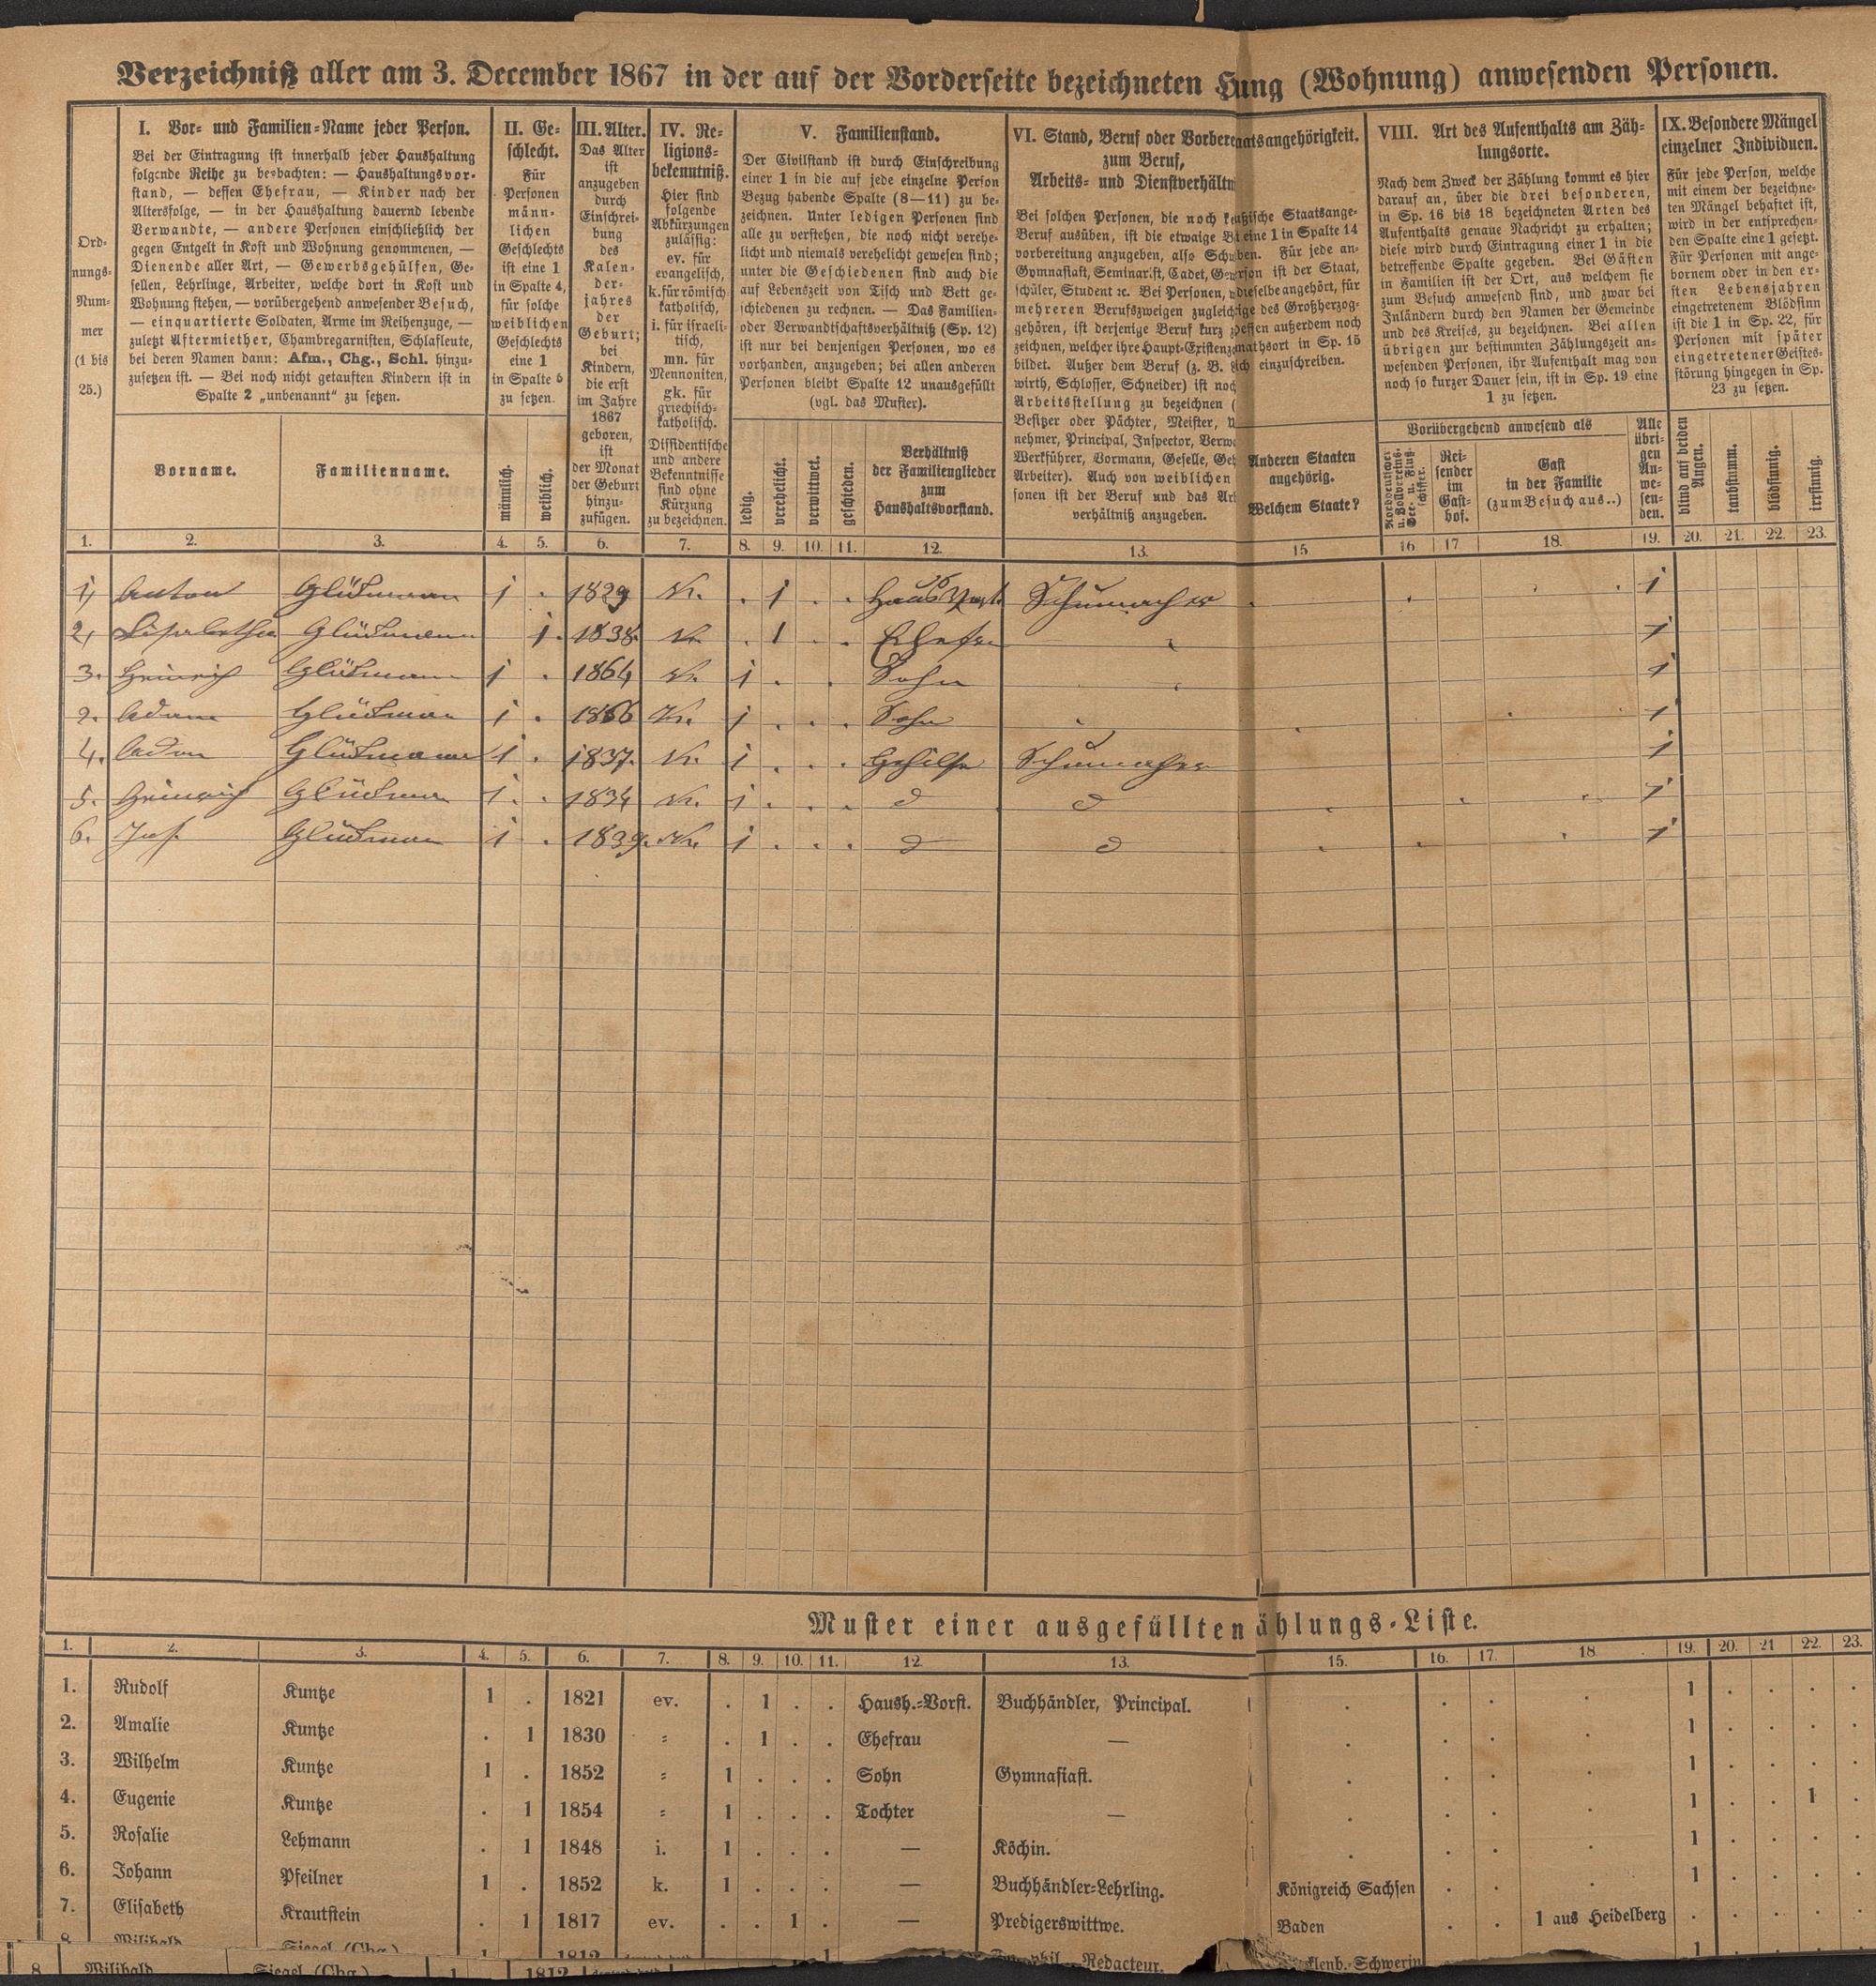 Verzeichniß aller am 3. December 1867 in der auf der Vorderseite bezeichneten Hung (Wohnung) anwesenden Personen.
Ord-
nungs-
Num-
mer
(1 bis
25.)
I. Vor- und Familien-Name jeder Person.
Bei der Eintragung ist innerhalb jeder Haushaltung
folgende Reihe zu beobachten: — Haushaltungsvor-
stand, — dessen Ehefrau, — Kinder nach der
Altersfolge, — in der Haushaltung dauernd lebende
Verwandte, — andere Personen einschließlich der
gegen Entgelt in Kost und Wohnung genommenen, —
Dienende aller Art, — Gewerbsgehülfen, Ge-
sellen, Lehrlinge, Arbeiter, welche dort in Kost und
Wohnung stehen, — vorübergehend anwesender Besuch,
— einquartierte Soldaten, Arme im Reihenzuge, —
zuletzt Aftermiether, Chambregarnisten, Schlafleute,
bei deren Namen dann: Afm., Chg., Schl. hinzu-
zusetzen ist. — Bei noch nicht getauften Kindern ist in
Spalte 2 „unbenannt“ zu setzen.
Vorname.
Familienname.
II. Ge-
schlecht.
Für
Personen
männ-
lichen
Geschlechts
ist eine 1
in Spalte 4,
für solche
weiblichen
Geschlechts
eine 1
in Spalte 5
zu setzen.
männlich.
weiblich.
III. Alter.
Das Alter
ist
anzugeben
durch
Einschrei-
bung
des
Kalen-
der-
jahres
der
Geburt;
bei
Kindern,
die erst
im Jahre
1867
geboren,
ist
der Monat
der Geburt
hinzu-
zufügen.
IV. Re-
ligions-
bekenntniß.
Hier sind
folgende
Abkürzungen
zulässig:
ev. für
evangelisch,
k. für römisch-
katholisch,
i. für israeli-
tisch,
mn. für
Mennoniten,
gk. für
griechisch-
katholisch.
Dissidentische
und andere
Bekenntnisse
sind ohne
Kürzung
zu bezeichnen.
V. Familienstand.
Der Civilstand ist durch Einschreibung
einer 1 in die auf jede einzelne Person
Bezug habende Spalte (8—11) zu be-
zeichnen. Unter ledigen Personen sind
alle zu verstehen, die noch nicht verehe-
licht und niemals verehelicht gewesen sind;
unter die Geschiedenen sind auch die
auf Lebenszeit von Tisch und Bett ge-
schiedenen zu rechnen. — Das Familien-
oder Verwandtschaftsverhältniß (Sp. 12)
ist nur bei denjenigen Personen, wo es
vorhanden, anzugeben; bei allen anderen
Personen bleibt Spalte 12 unausgefüllt
(vgl. das Muster).
ledig.
verehelicht.
verwittwet.
geschieden.
Verhältniß
der Familienglieder
zum
Haushaltsvorstand.
VI. Stand, Beruf oder Vorbere
zum Beruf,
Arbeits- und Dienstverhältn
Bei solchen Personen, die noch k
Beruf ausüben, ist die etwaige B
vorbereitung anzugeben, also Sch
Gymnasiast, Seminarist, Cadet, Gew
schüler, Student ꝛc. Bei Personen,
mehreren Berufszweigen zugleich
gehören, ist derjenige Beruf kurz z
zeichnen, welcher ihre Haupt-Existenz
bildet. Außer dem Beruf (z. B.
wirth, Schlosser, Schneider) ist noch
Arbeitsstellung zu bezeichnen (
Besitzer oder Pächter, Meister, U
nehmer, Principal, Inspector, Verwa
Werkführer, Vormann, Geselle, Geh
Arbeiter). Auch von weiblichen
sonen ist der Beruf und das Arb
verhältniß anzugeben.
aatsangehörigkeit.
ußische Staatsange-
eine 1 in Spalte 14
ben. Für jede an-
rson ist der Staat,
dieselbe angehört, für
ige des Großherzog-
essen außerdem noch
mathsort in Sp. 15
ich einzuschreiben.
Anderen Staaten
angehörig.
Welchem Staate?
VIII. Art des Aufenthalts am Zäh-
lungsorte.
Nach dem Zweck der Zählung kommt es hier
darauf an, über die drei besonderen,
in Sp. 16 bis 18 bezeichneten Arten des
Aufenthalts genaue Nachricht zu erhalten;
diese wird durch Eintragung einer 1 in die
betreffende Spalte gegeben. Bei Gästen
in Familien ist der Ort, aus welchem sie
zum Besuch anwesend sind, und zwar bei
Inländern durch den Namen der Gemeinde
und des Kreises, zu bezeichnen. Bei allen
übrigen zur bestimmten Zählungszeit an-
wesenden Personen, ihr Aufenthalt mag von
noch so kurzer Dauer sein, ist in Sp. 19 eine
1 zu setzen.
Vorübergehend anwesend als
Norddeutscher
u. Zollvereins-
See- u. Fluß-
schiffer.
Rei-
sender
im
Gast-
hof.
Gast
in der Familie
(zum Besuch aus..)
Alle
übri-
gen
An-
we-
sen-
den.
IX. Besondere Mängel
einzelner Individuen.
Für jede Person, welche
mit einem der bezeichne-
ten Mängel behaftet ist,
wird in der entsprechen-
den Spalte eine 1 gesetzt.
Für Personen mit ange-
bornem oder in den er-
sten Lebensjahren
eingetretenem Blödsinn
ist die 1 in Sp. 22, für
Personen mit später
eingetretener Geistes-
störung hingegen in Sp.
23 zu setzen.
blind auf beiden
Augen.
taubstumm.
blödsinnig.
irrsinnig.
1. 2. 3. 4. 5. 6. 7. 8. 9. 10. 11. 12. 13. 15 16 17 18. 19. 20. 21. 22. 23.
1) Anton Glückmann 1 . 1829 K. . 1 . . HausVorst. Schumacher . . . . 1
2) Elisabetha Glückmann 1. 1838. K. . 1 . . Ehefr 1
3. Heinrich Glückmann 1 . 1864 K. 1 . . Sohn 1
2. Adam Glückman 1 . 1866 K. 1 . . . Sohn 1
4. Adam Glückmann 1 . 1837. K. 1 . . . Gehilfe Schumacher 1
5. Heinrich Glückman 1. . 1834 K. 1 . . . d d 1
6. Jos. Glückman 1 . 1839. K. 1 . . . d d 1
Muster einer ausgefüllten ählungs-Liste.
1. 2. 3. 4. 5. 6. 7. 8. 9. 10. 11. 12. 13. 15. 16. 17. 18 19. 20. 21 22. 23.
1. Rudolf Kuntze 1 . 1821 ev. . 1 . . Haush.-Vorst. Buchhändler, Principal. . . . . 1 . . . .
2. Amalie Kuntze . 1 1830 „ . 1 . . Ehefrau — . . . . 1 . . . .
3. Wilhelm Kuntze 1 . 1852 „ 1 . . . Sohn Gymnasiast. . . . . 1 . . . .
4. Eugenie Kuntze . 1 1854 „ 1 . . . Tochter — . . . . 1 . . 1 .
5. Rosalie Lehmann . 1 1848 i. 1 . . . — Köchin. . . . . 1 . . . .
6. Johann Pfeilner 1 . 1852 k. 1 . . . — Buchhändler-Lehrling. Königreich Sachsen . . . 1 . . . .
7. Elisabeth Krautstein . 1 1817 ev. . . 1 . — Predigerswittwe. Baden . . 1 aus Heidelberg . . . . .
8. Wilibald Siegel (Chg.) 1 1812 1 Redacteur. klenb.-Schwerin 1
8 Wilibald Siegel (Chg.) 1 1812